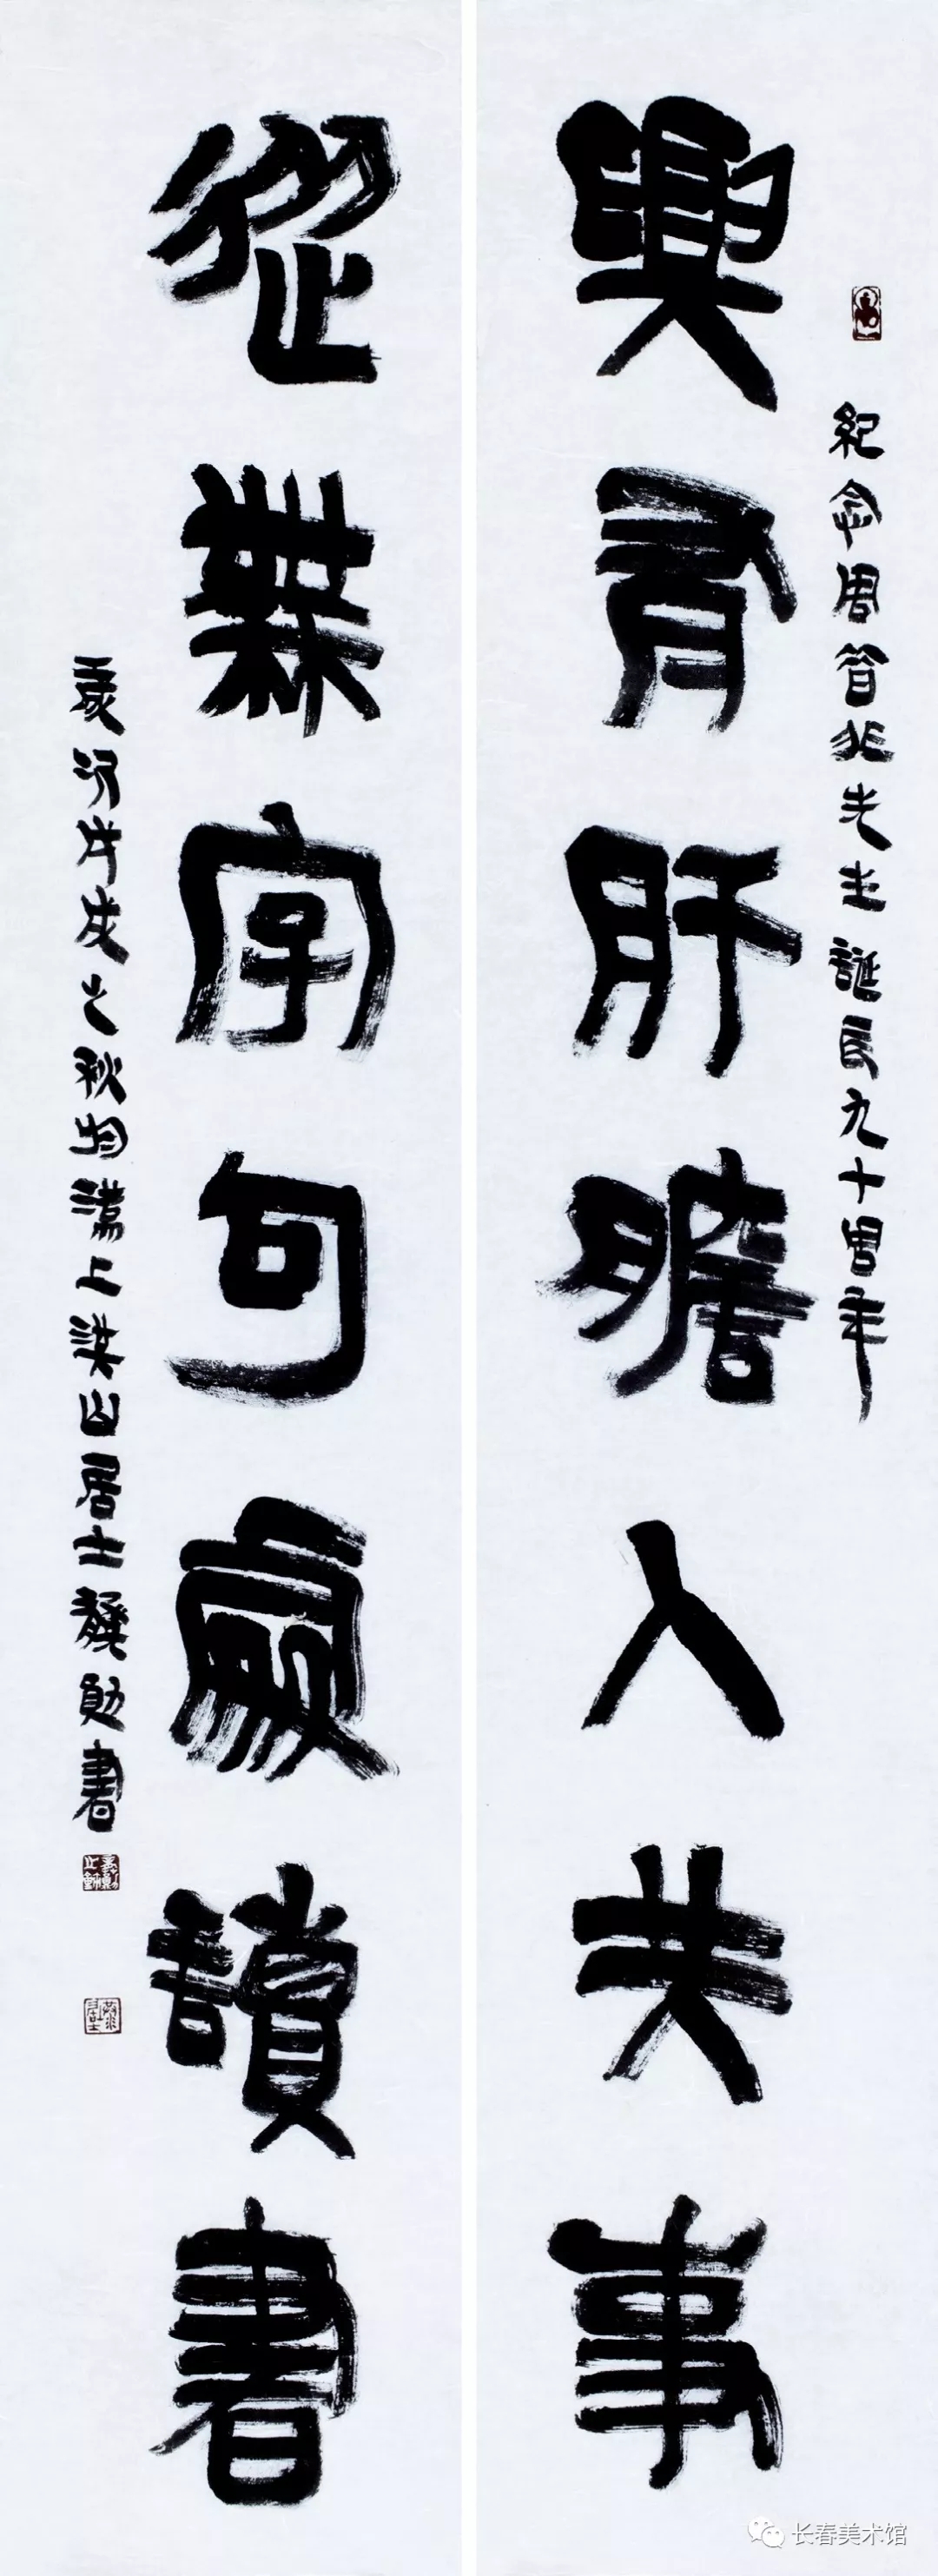 紀念周昔非先生誕辰九十周年
與有肝膽人共事
從無字句處讀書
歲次戊戌之秋 上梁山居士龔勛書
长春美术馆